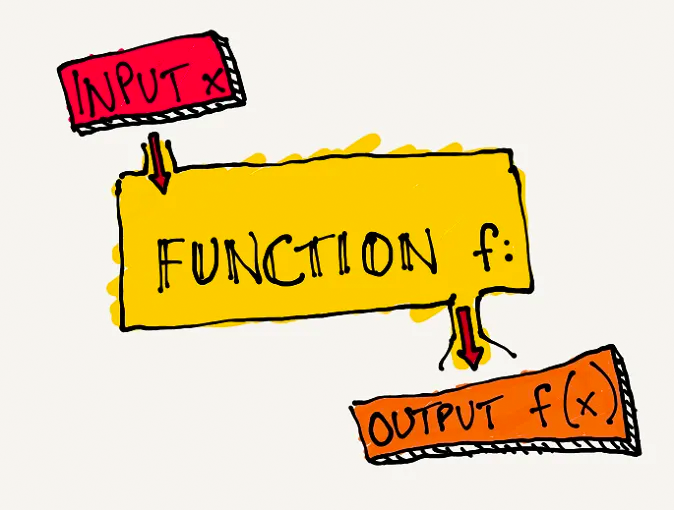 INPUT x
FUNCTION f:
OUTPUT f(x)